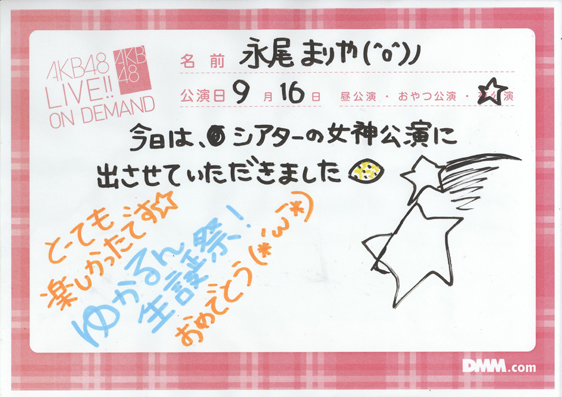 AKB48
LIVE!!
ON DEMAND
AKB
48
名前 永尾 まりや(^o^)ノ
公演日 9月16日 昼公演・おやつ公演・☆公演
今日は、シアターの女神公演に
出させていただきました
とーても
楽しかったでーす☆
ゆかるん
生誕祭！
おめでとう(*´ω`*)
DMM.com